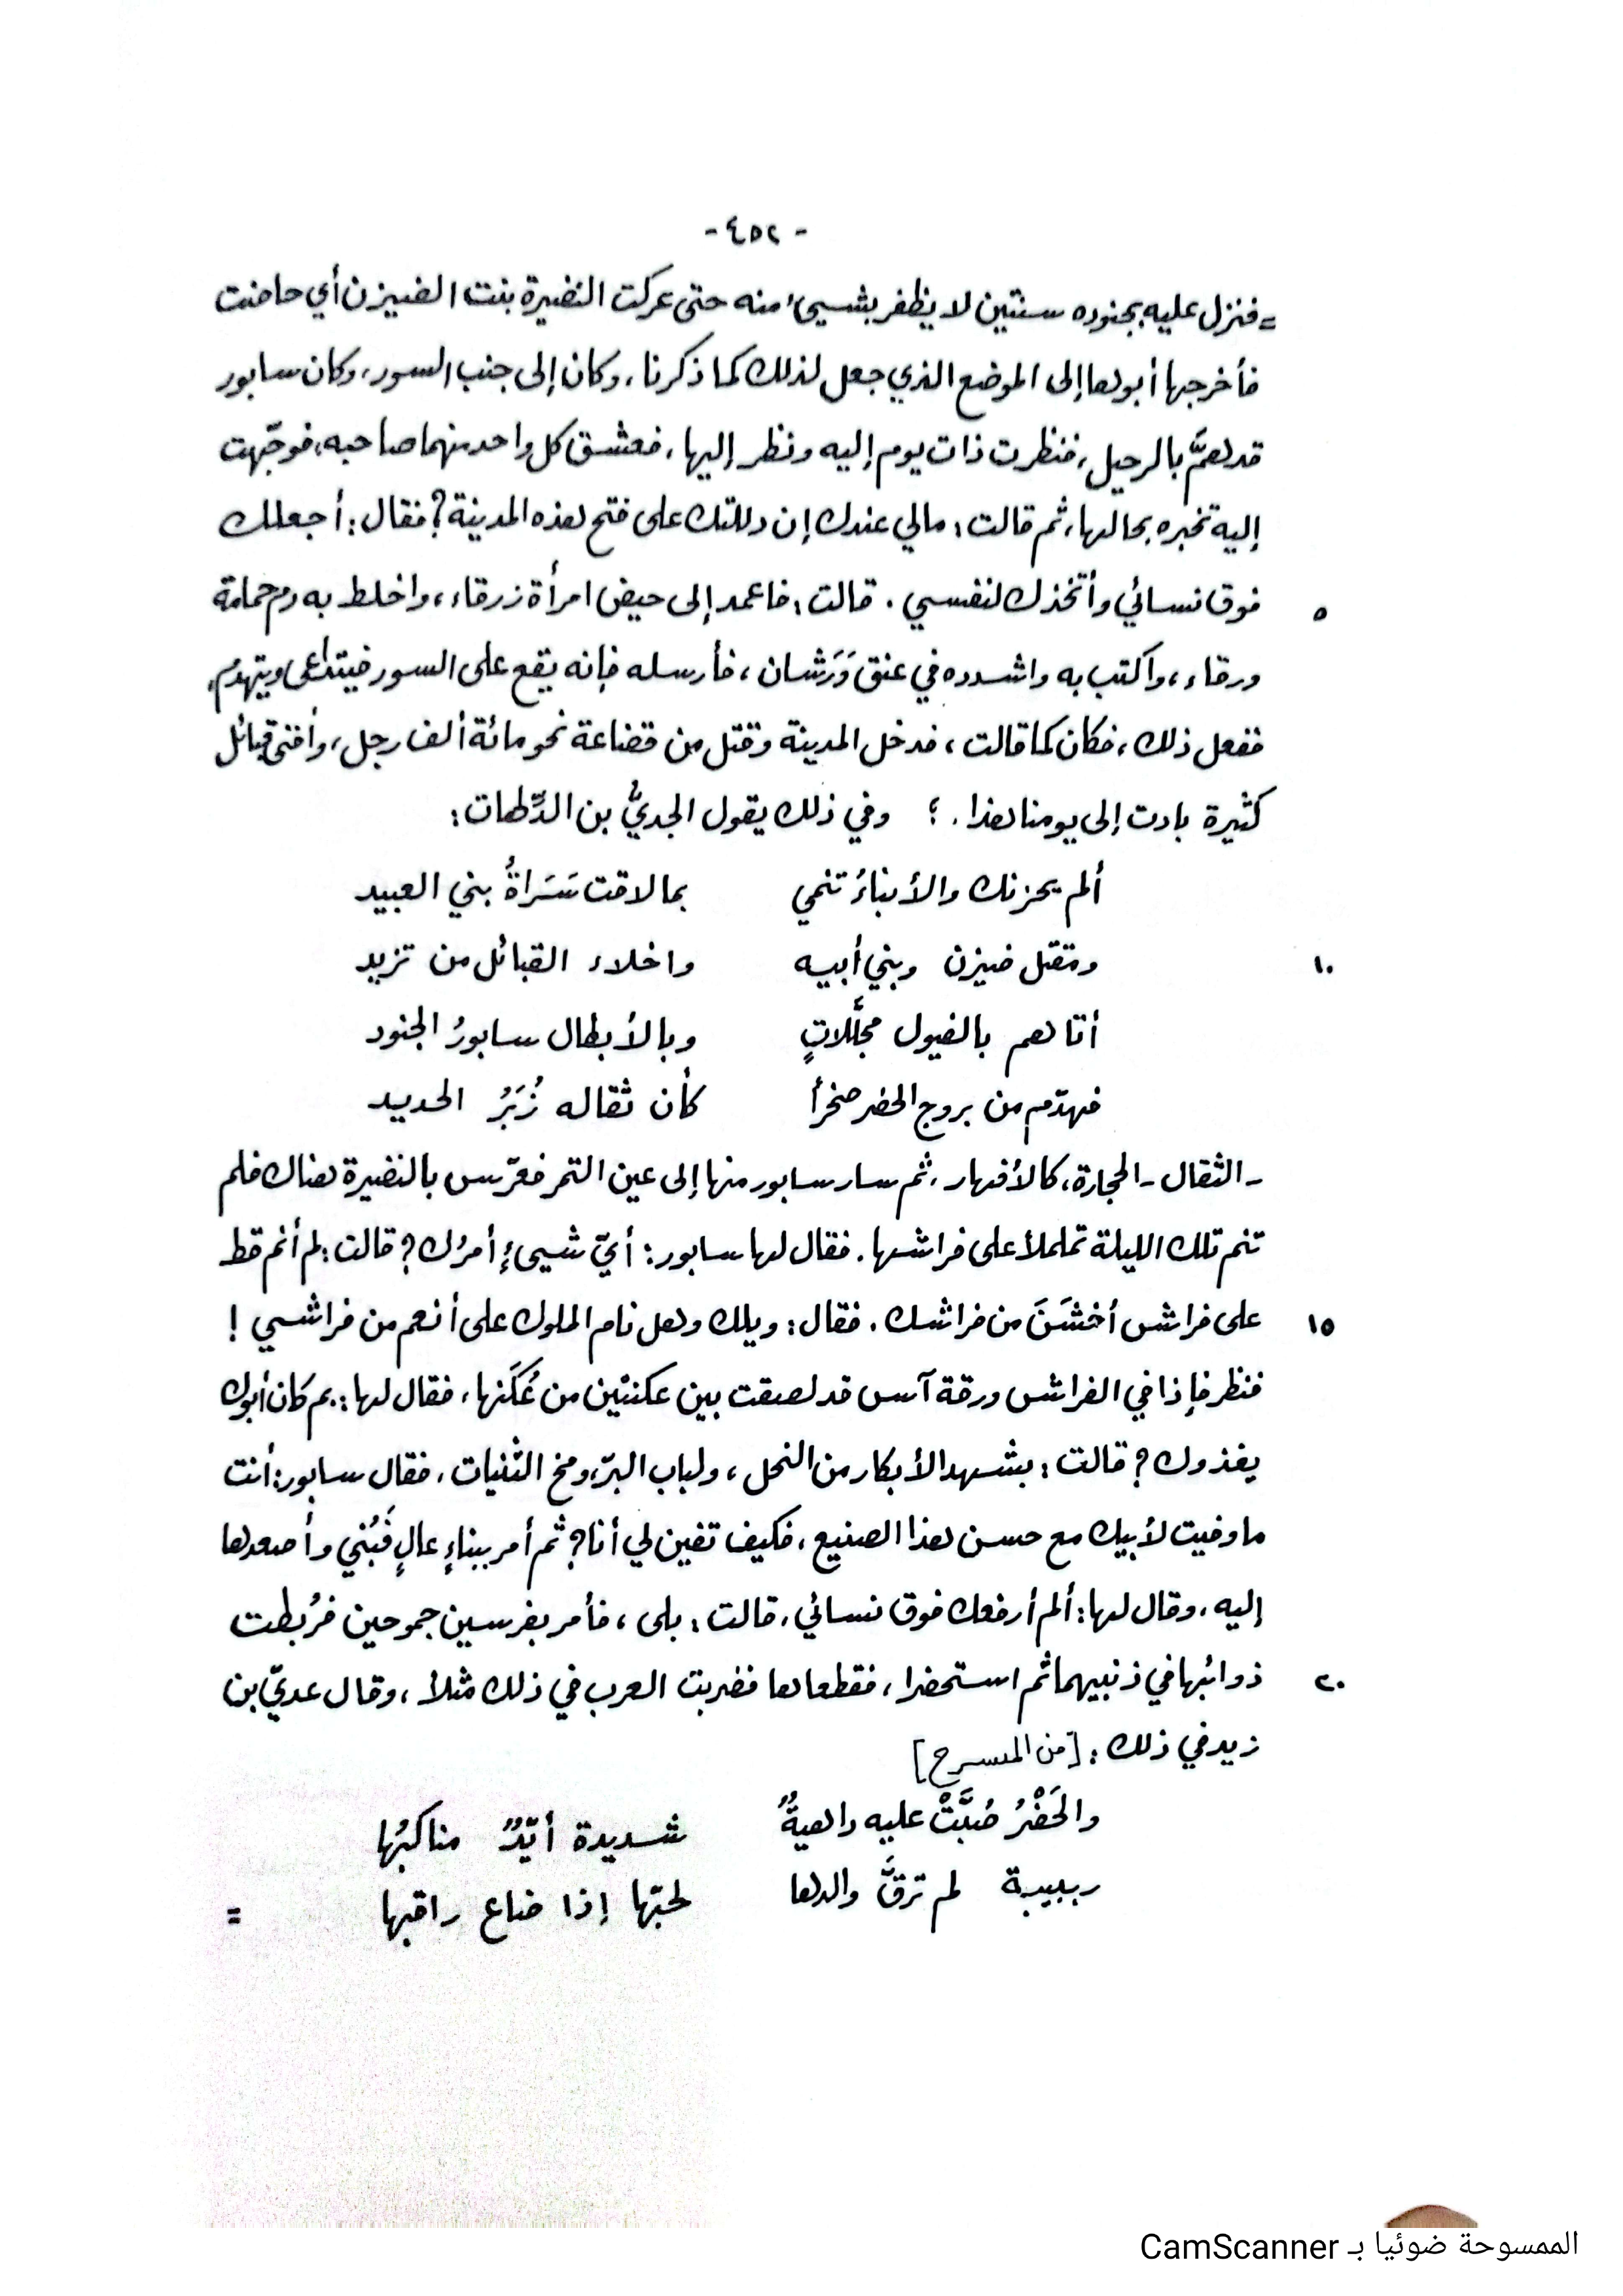 - ٤٥٢ -
= فنزل عليه بجنوده سنتين لا يظفر بشيىء منه حتى عركت النضيرة بنت الضيزن أي حاضت
فأخرجها أبوها إلى الموضع الذي جعل لذلك كما ذكرنا، وكان إلى جنب السور، وكان سابور
قد همَّ بالرحيل، فنظرت ذات يوم إليه ونظر إليها، فعشق كل واحد منهما صاحبه، فوجّهت
إليه تخبره بحالها، ثم قالت: مالي عندك إن دللتك على فتح هذه المدينة؟ فقال: أجعلك
٥ فوق نسائي وأتخذك لنفسي. قالت: فاعمد إلى حيض امرأة زرقاء، واخلط به دم حمامة
ورقاء، واكتب به واشدده في عنق وَرَشان، فأرسله فإنه يقع على السور فيتداعى ويتهدم،
ففعل ذلك، فكان كما قالت، فدخل المدينة وقتل من قضاعة نحو مائة ألف رجل، وأفنى قبائل
كثيرة بادت إلى يومنا هذا. ؛ وفي ذلك يقول الجديُّ بن الدِّلهاث:
ألم يحزنك والأنباءُ تنمي بما لاقت سَرَاةُ بني العبيد
١٠ ومقتل ضيزن وبني أبيه واخلاء القبائل من تزيد
أتاهم بالفيول مجلَّلاتٍ وبالأبطال سابورُ الجنود
فهدّم من بروج الحضر صخراً كأن ثقاله زُبَرُ الحديد
- الثقال - الحجارة، كالأفهار، ثم سار سابور منها إلى عين التمر فعرّس بالنضيرة هناك فلم
تنم تلك الليلة تململاً على فراشها. فقال لها سابور: أيّ شيىءٍ أمرُك؟ قالت: لم أنم قط
١٥ على فراش أخشَنَ من فراشك. فقال: ويلك وهل نام الملوك على أنعم من فراشي !
فنظر فإذا في الفراش ورقة آس قد لصقت بين عكنتين من عُكَنها، فقال لها: بم كان أبوك
يغذوك؟ قالت: بشهد الأبكار من النحل، ولباب البرّ، ومخ الثنيات. فقال سابور: أنت
ما وفيت لأبيك مع حسن هذا الصنيع، فكيف تفين لي أنا؟ ثم أمر ببناءٍ عالٍ فَبُني وأصعدها
إليه، وقال لها: ألم أرفعك فوق نسائي، قالت: بلى، فأمر بفرسين جموحين فرُبطت
٢٠ ذوائبها في ذنبيهما ثم استحضرا، فقطعاها فضربت العرب في ذلك مثلاً، وقال عديّ بن
زيد في ذلك: [من المنسرح]
والحَضْرُ صُبَّتْ عليه داهيةٌ شديدة أيّدٌ مناكبُها
ربيبة لم ترقَّ والدها لحبّها إذا ضاع راقبها =
الممسوحة ضوئيا بـ CamScanner